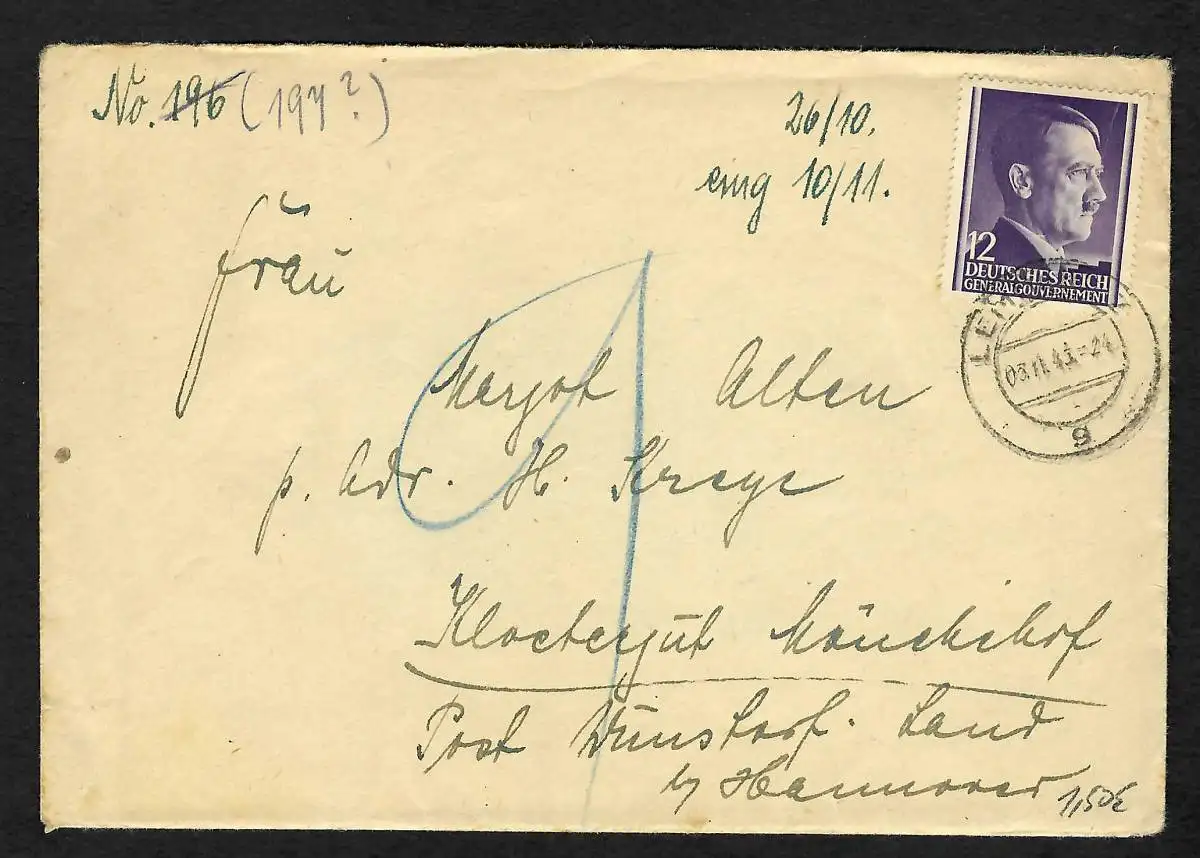 No. 196 (197?)
26/10.
eing 10/11.
12
DEUTSCHES REICH
GENERALGOUVERNEMENT
LEM
03.11.43.-24
g
Frau
Margot Alten
p. Adr. H. Kreye
Klostergut Mönchshof
Post Wunstorf. Land
by Hannover
1,50€